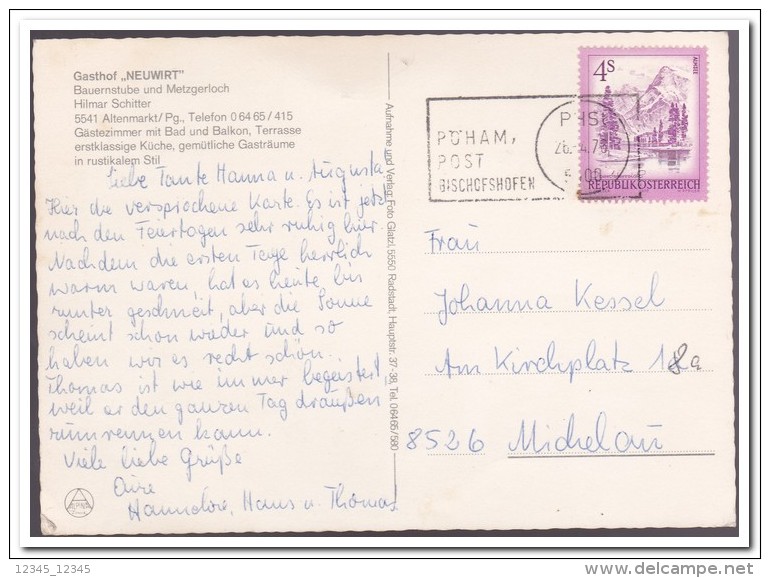 Gasthof „NEUWIRT"
Bauernstube und Metzgerloch
Hilmar Schitter
5541 Altenmarkt/ Pg., Telefon 0 64 65 / 415
Gästezimmer mit Bad und Balkon, Terrasse
erstklassige Küche, gemütliche Gasträume
in rustikalem Stil
Liebe Tante Hanna u. Augusta
Hier die versprochene Karte. Es ist jetzt
nach den Feiertagen sehr ruhig hier.
Nachdem die ersten Tage herrlich
warm waren, hat es heute bis
runter geschneit, aber die Sonne
scheint schon wieder und so
haben wir es recht schön.
Thomas ist wie immer begeistert
weil er den ganzen Tag draußen
rumrennen kann.
Viele liebe Grüße
Eure
Hannelore, Hans u. Thomas
Aufnahme und Verlag: Foto Glatzl, 5550 Radstadt, Hauptstr. 37-38, Tel. 06465/580
PÖHAM,
POST
BISCHOFSHOFEN
4S
ALMSEE
REPUBLIK ÖSTERREICH
Frau
Johanna Kessel
Am Kirchplatz 18a
8526 Michelau
12345_12345
delcampe.net